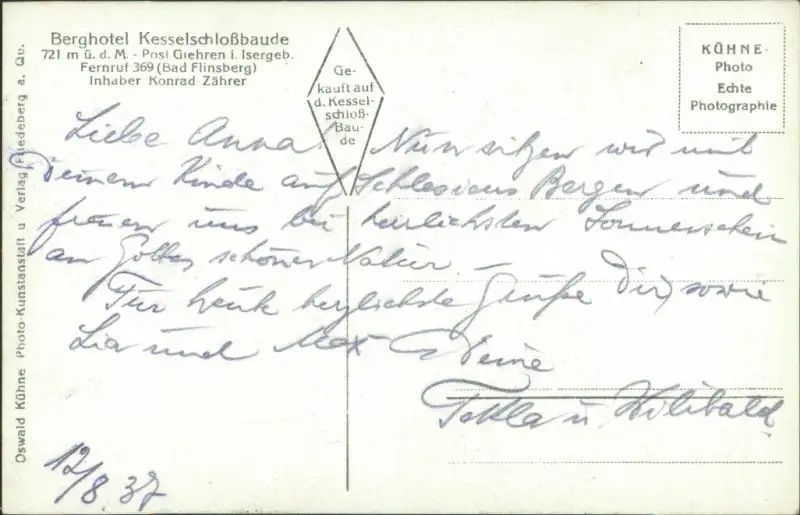 Berghotel Kesselschloßbaude
721 m ü. d. M. - Post Giehren i. Isergeb.
Fernruf 369 (Bad Flinsberg)
Inhaber Konrad Zährer
Ge-
kauft auf
d. Kessel-
schloß-
Bau-
de
KÜHNE-
Photo
Echte
Photographie
Oswald Kühne Photo-Kunstanstalt u Verlag, Friedeberg a. Qu.
Liebe Anna! Nun sitzen wir mit
Deinem Kinde auf Schlesiens Bergen und
freuen uns bei herrlichsten Sonnenschein
an Gottes schöner Natur. –
Für heute herzlichste Grüße Dir, sowie
Lia und Max Deine
Tekla u. Wilibald.
12/8.37